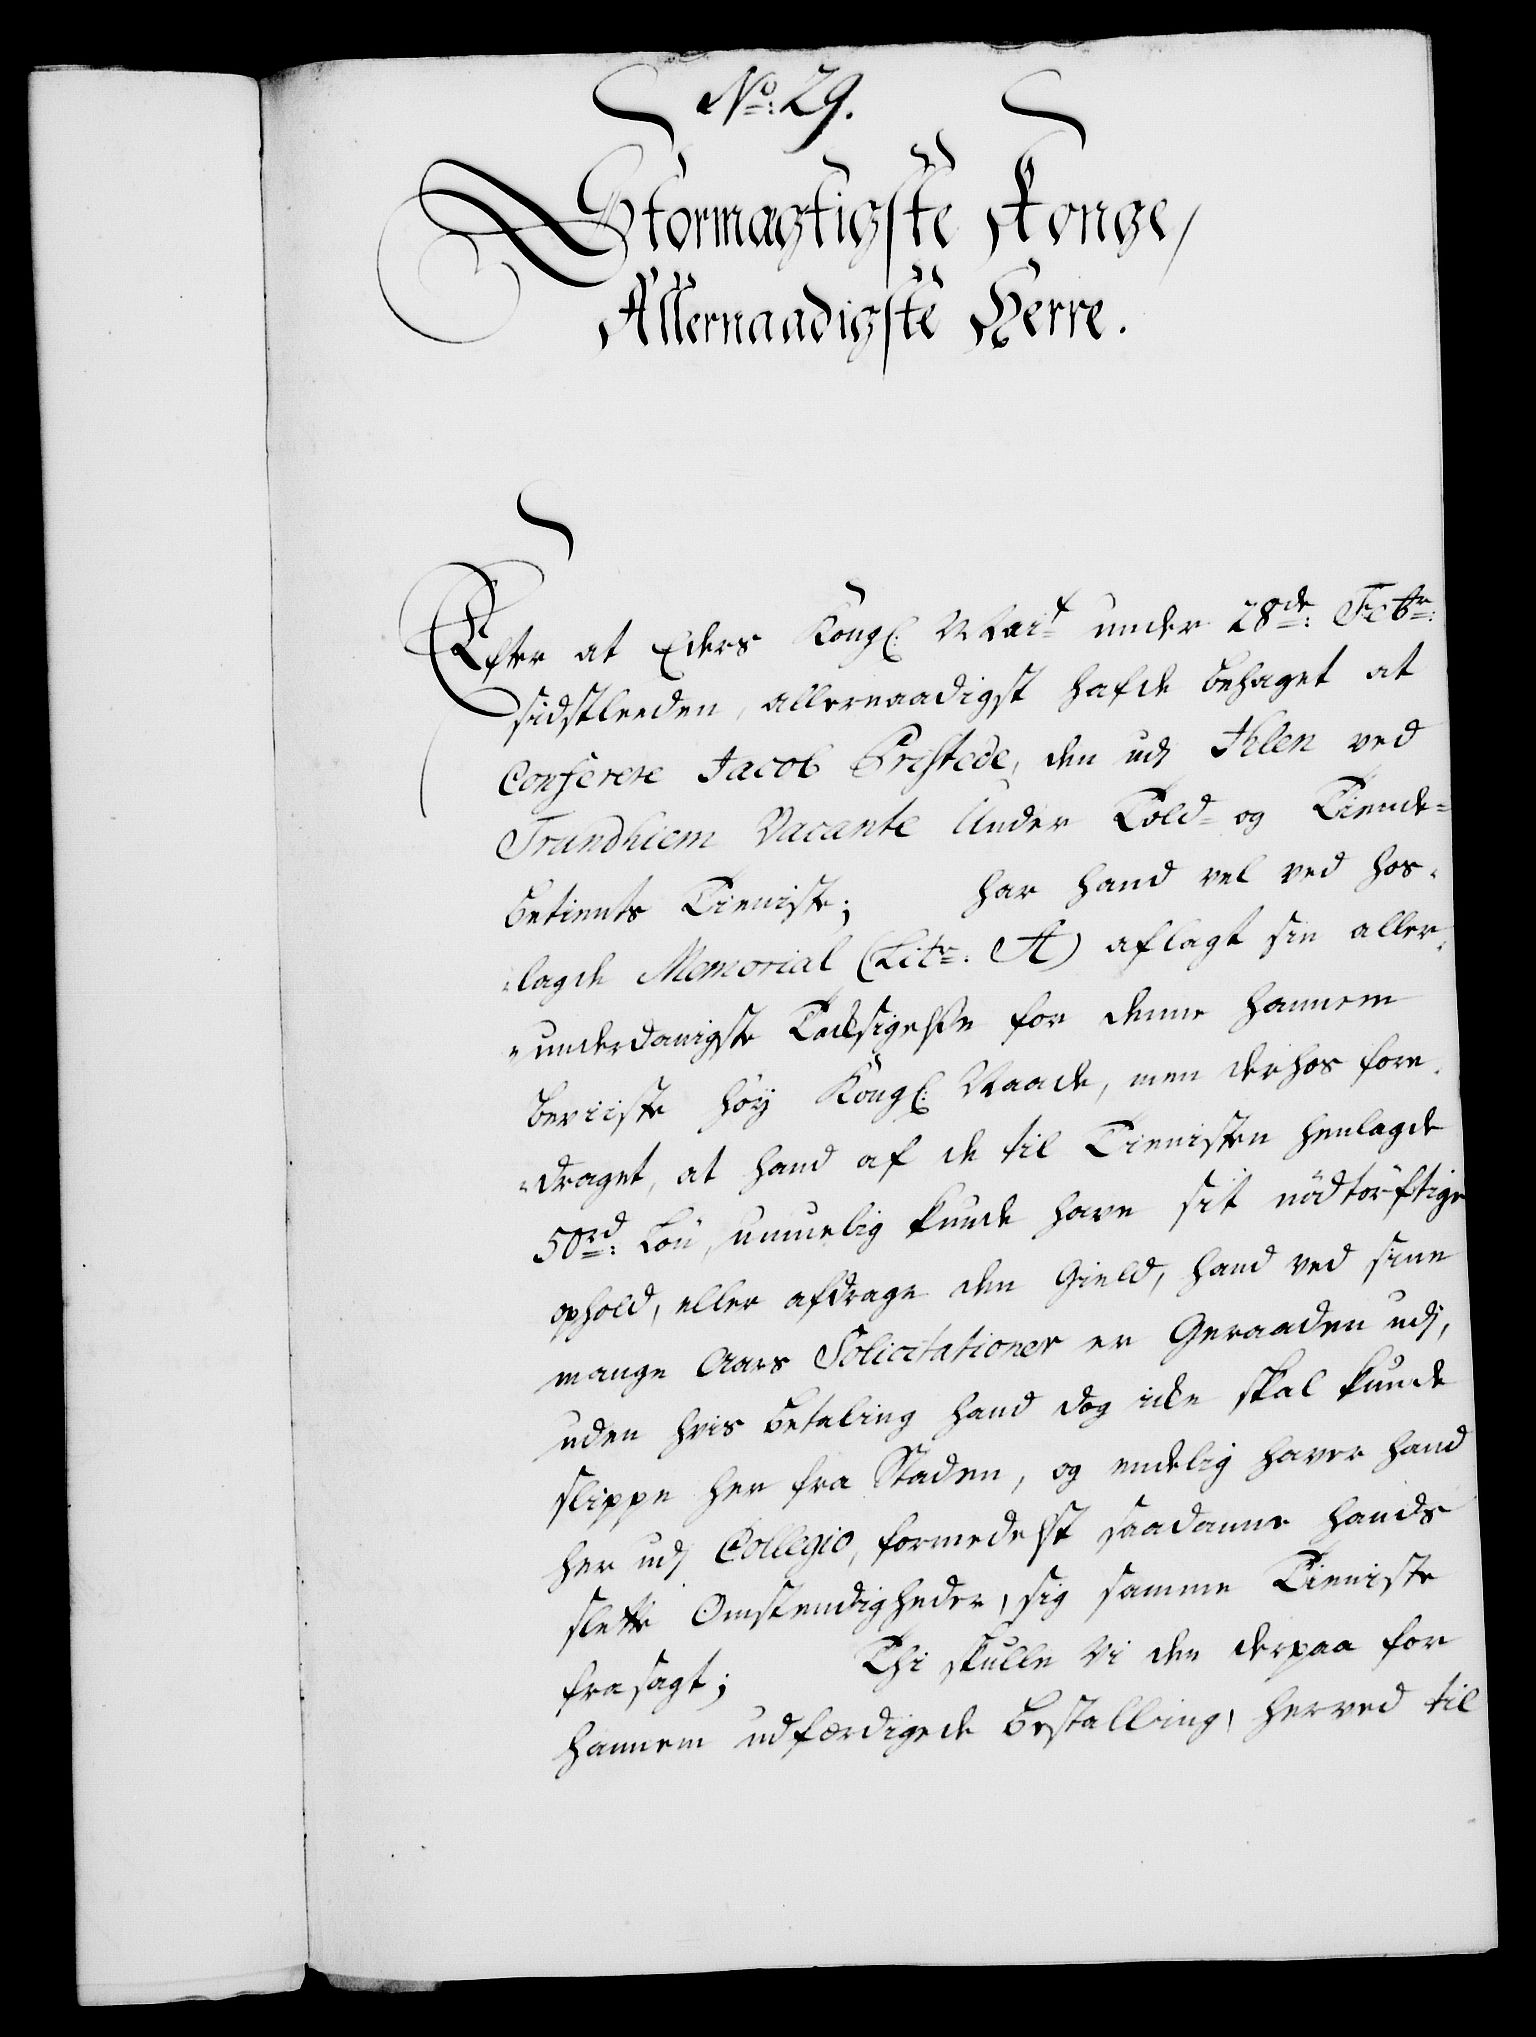 No: 29.
Stormægtigste Konge,
Allernaadigste Herre.
Efter at Eders Kongl: Mait under 28de: Febr:
sidstleeden, allernaadigst hafde behaget at
Conferere Jacob Pristede, den udj Ihlen ved
Trundhiem Vacante Under Told- og Tiende-
betients Tieniste; har hand vel ved hos-
lagde Memorial (Litr: A) aflagt sin aller-
underdanigste Taksigelse for denne hannem
beviiste høy Kongl: Naade, men derhos fore-
draget, at hand af de til Tienisten henlagde
50rd: Løn, umuelig kunde have sit nødtørftige
ophold, eller afdrage den Gield, hand ved sine
mange Aars Solicitationer er Geraaden udj,
uden hvis betaling hand dog icke skal kunde
slippe her fra Staden, og endelig haver hand
her udj Collegio, formedelst saadanne hands
slette Omstendigheder, sig samme Tieniste
frasagt; Thi skulle Vi den derpaa for
hannem udfærdigede bestalling, herved til